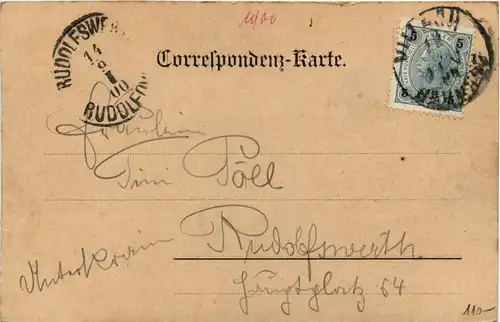 1900
RUDOLFSWE
14
8
00
RUDOLFO
Correspondenz-Karte.
5 5
Fräulein
Tini Pöll
Rudolfswerth
Unterkrain
Hauptplatz 64
110-